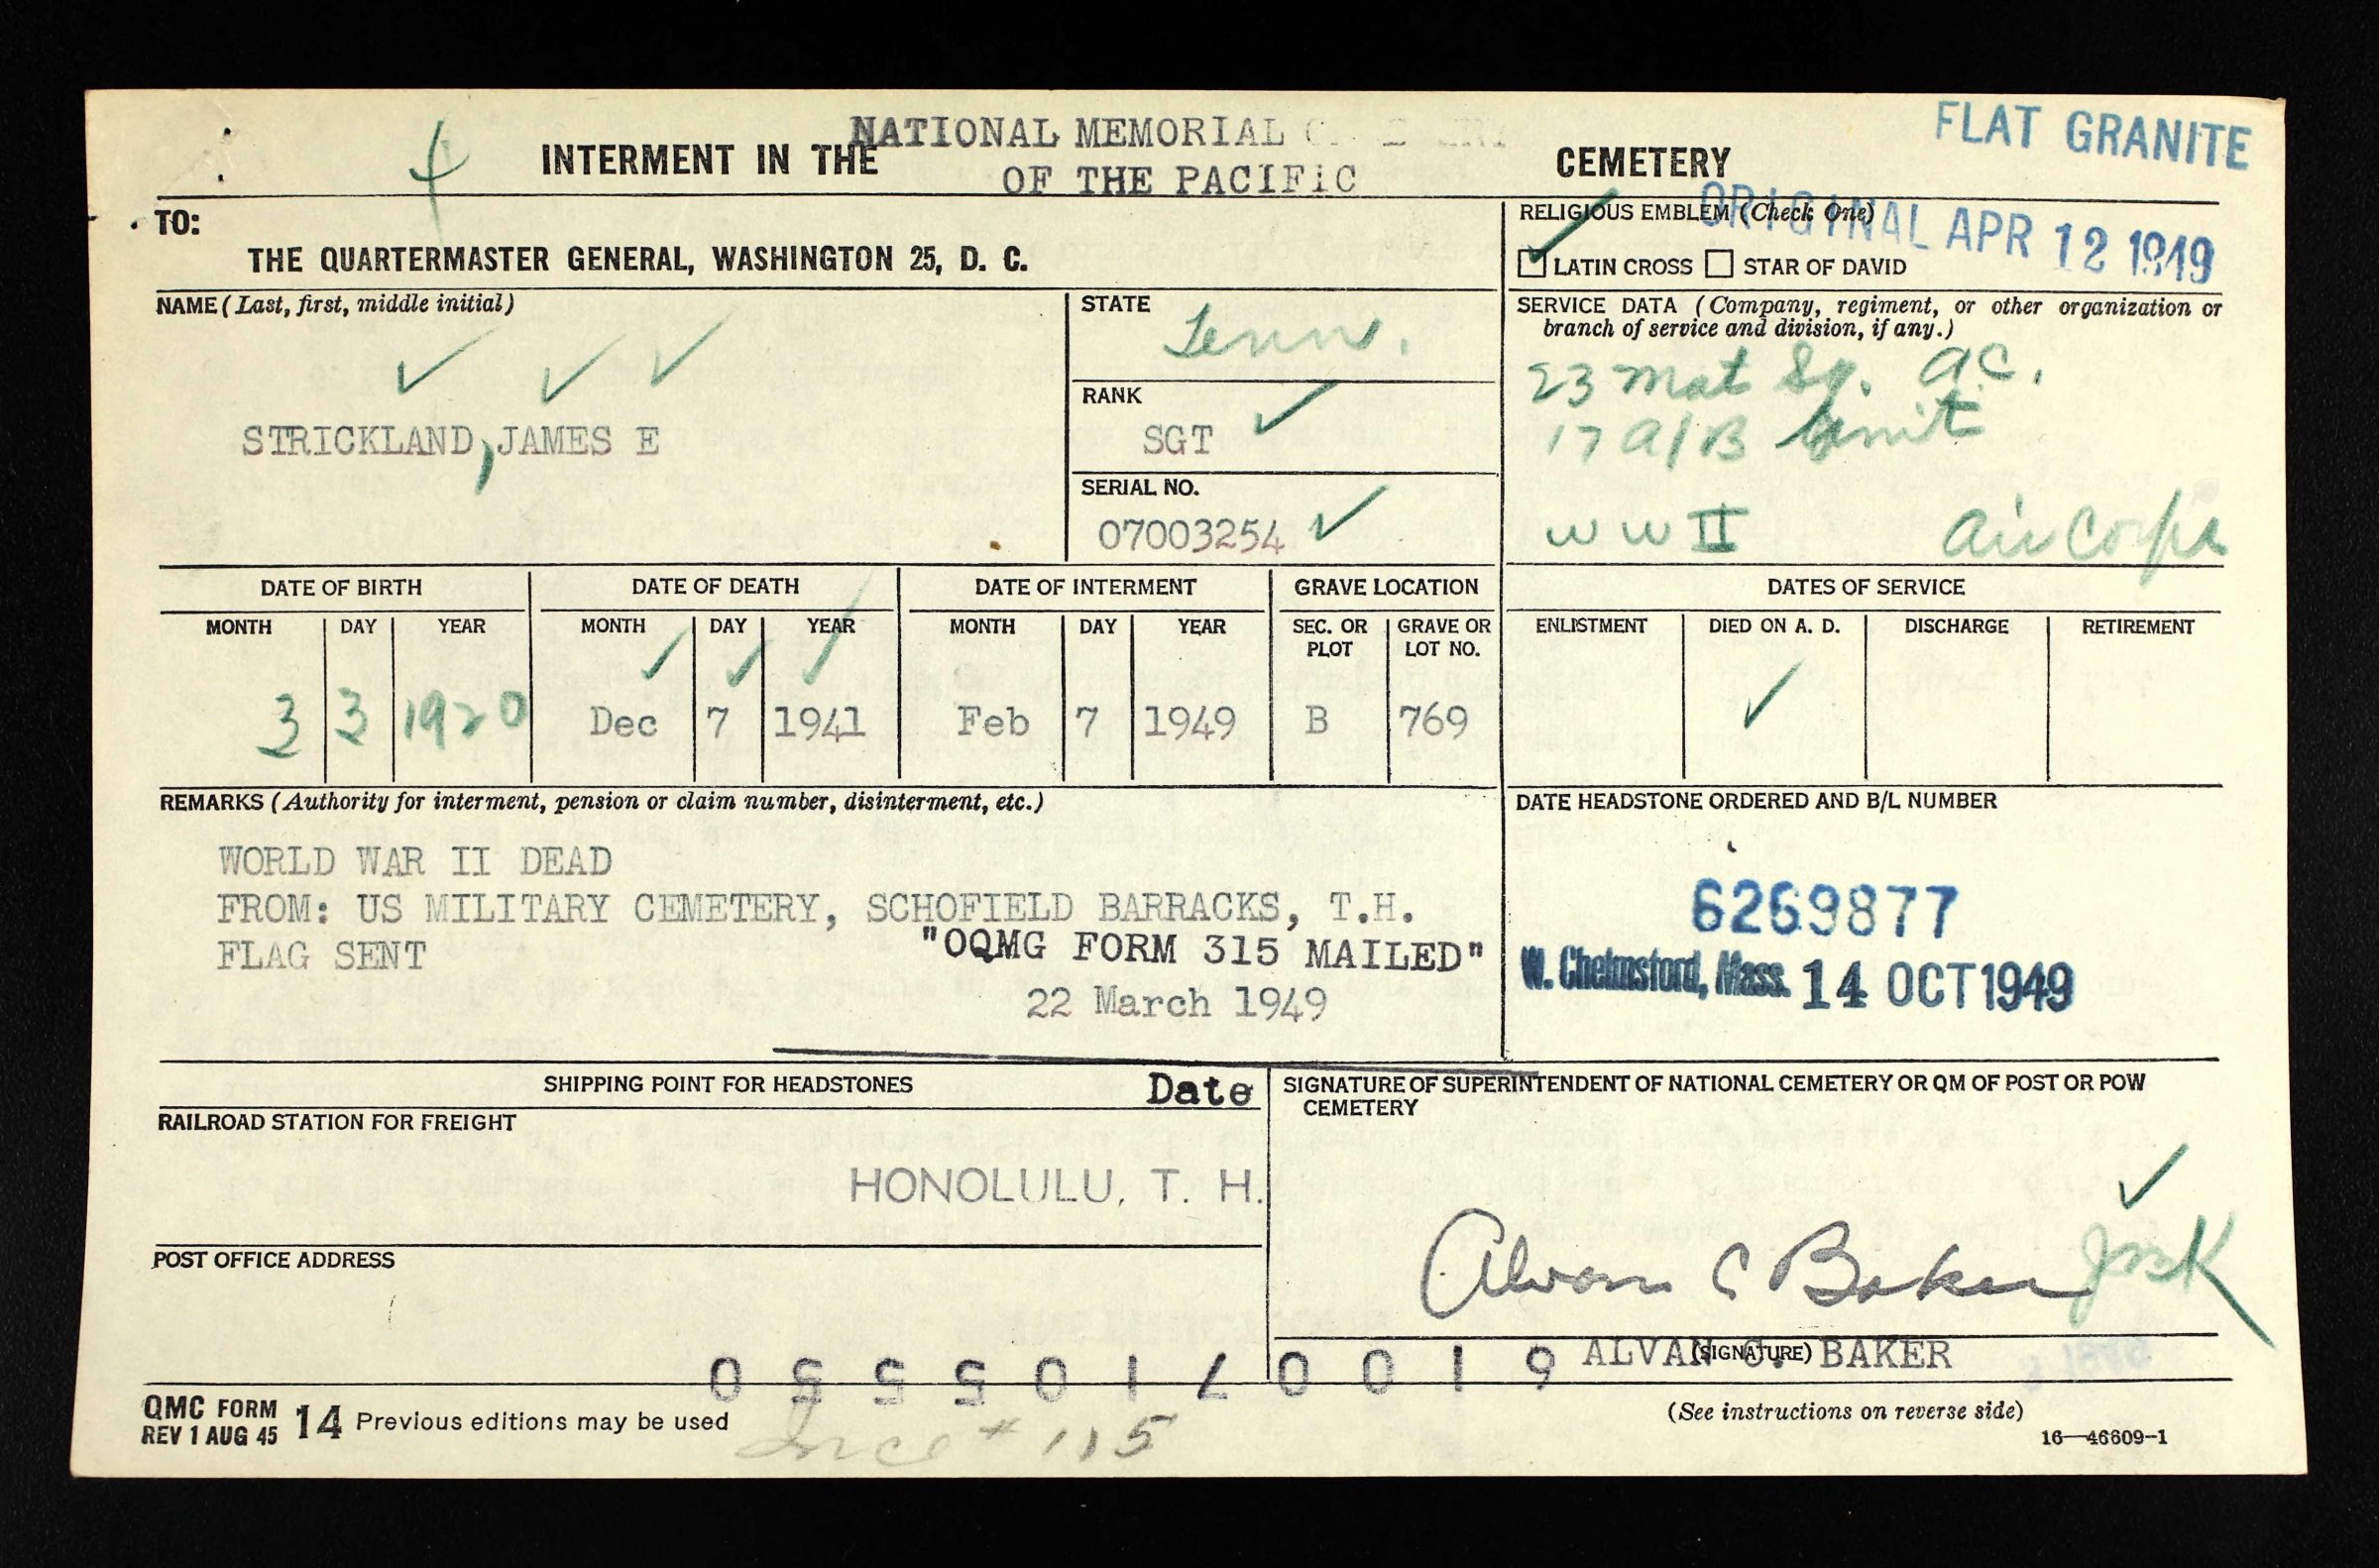 NATIONAL MEMORIAL
INTERMENT IN THE CEMETERY
OF THE PACIFIC
FLAT GRANITE
TO:
THE QUARTERMASTER GENERAL, WASHINGTON 25, D. C.
RELIGIOUS EMBLEM (Check One)
ORIGINAL APR 12 1949
LATIN CROSS STAR OF DAVID
NAME (Last, first, middle initial)
STRICKLAND, JAMES E
STATE
Tenn.
RANK
SGT
SERIAL NO.
07003254
SERVICE DATA (Company, regiment, or other organization or
branch of service and division, if any.)
23 Mat Sq. AC.
17 A/B Unit
WW II Air Corps
DATE OF BIRTH DATE OF DEATH DATE OF INTERMENT GRAVE LOCATION DATES OF SERVICE
MONTH DAY YEAR MONTH DAY YEAR MONTH DAY YEAR SEC. OR PLOT GRAVE OR LOT NO. ENLISTMENT DIED ON A. D. DISCHARGE RETIREMENT
3 3 1920 Dec 7 1941 Feb 7 1949 B 769
REMARKS (Authority for interment, pension or claim number, disinterment, etc.)
WORLD WAR II DEAD
FROM: US MILITARY CEMETERY, SCHOFIELD BARRACKS, T.H.
FLAG SENT "OQMG FORM 315 MAILED"
22 March 1949
DATE HEADSTONE ORDERED AND B/L NUMBER
6269877
W. Chelmsford, Mass. 14 OCT 1949
SHIPPING POINT FOR HEADSTONES Date
RAILROAD STATION FOR FREIGHT
HONOLULU, T. H.
POST OFFICE ADDRESS
SIGNATURE OF SUPERINTENDENT OF NATIONAL CEMETERY OR QM OF POST OR POW
CEMETERY
Alvan C Baker
ALVAN C. BAKER
(SIGNATURE)
QMC FORM 14 Previous editions may be used
REV 1 AUG 45
115
(See instructions on reverse side)
16—46609-1